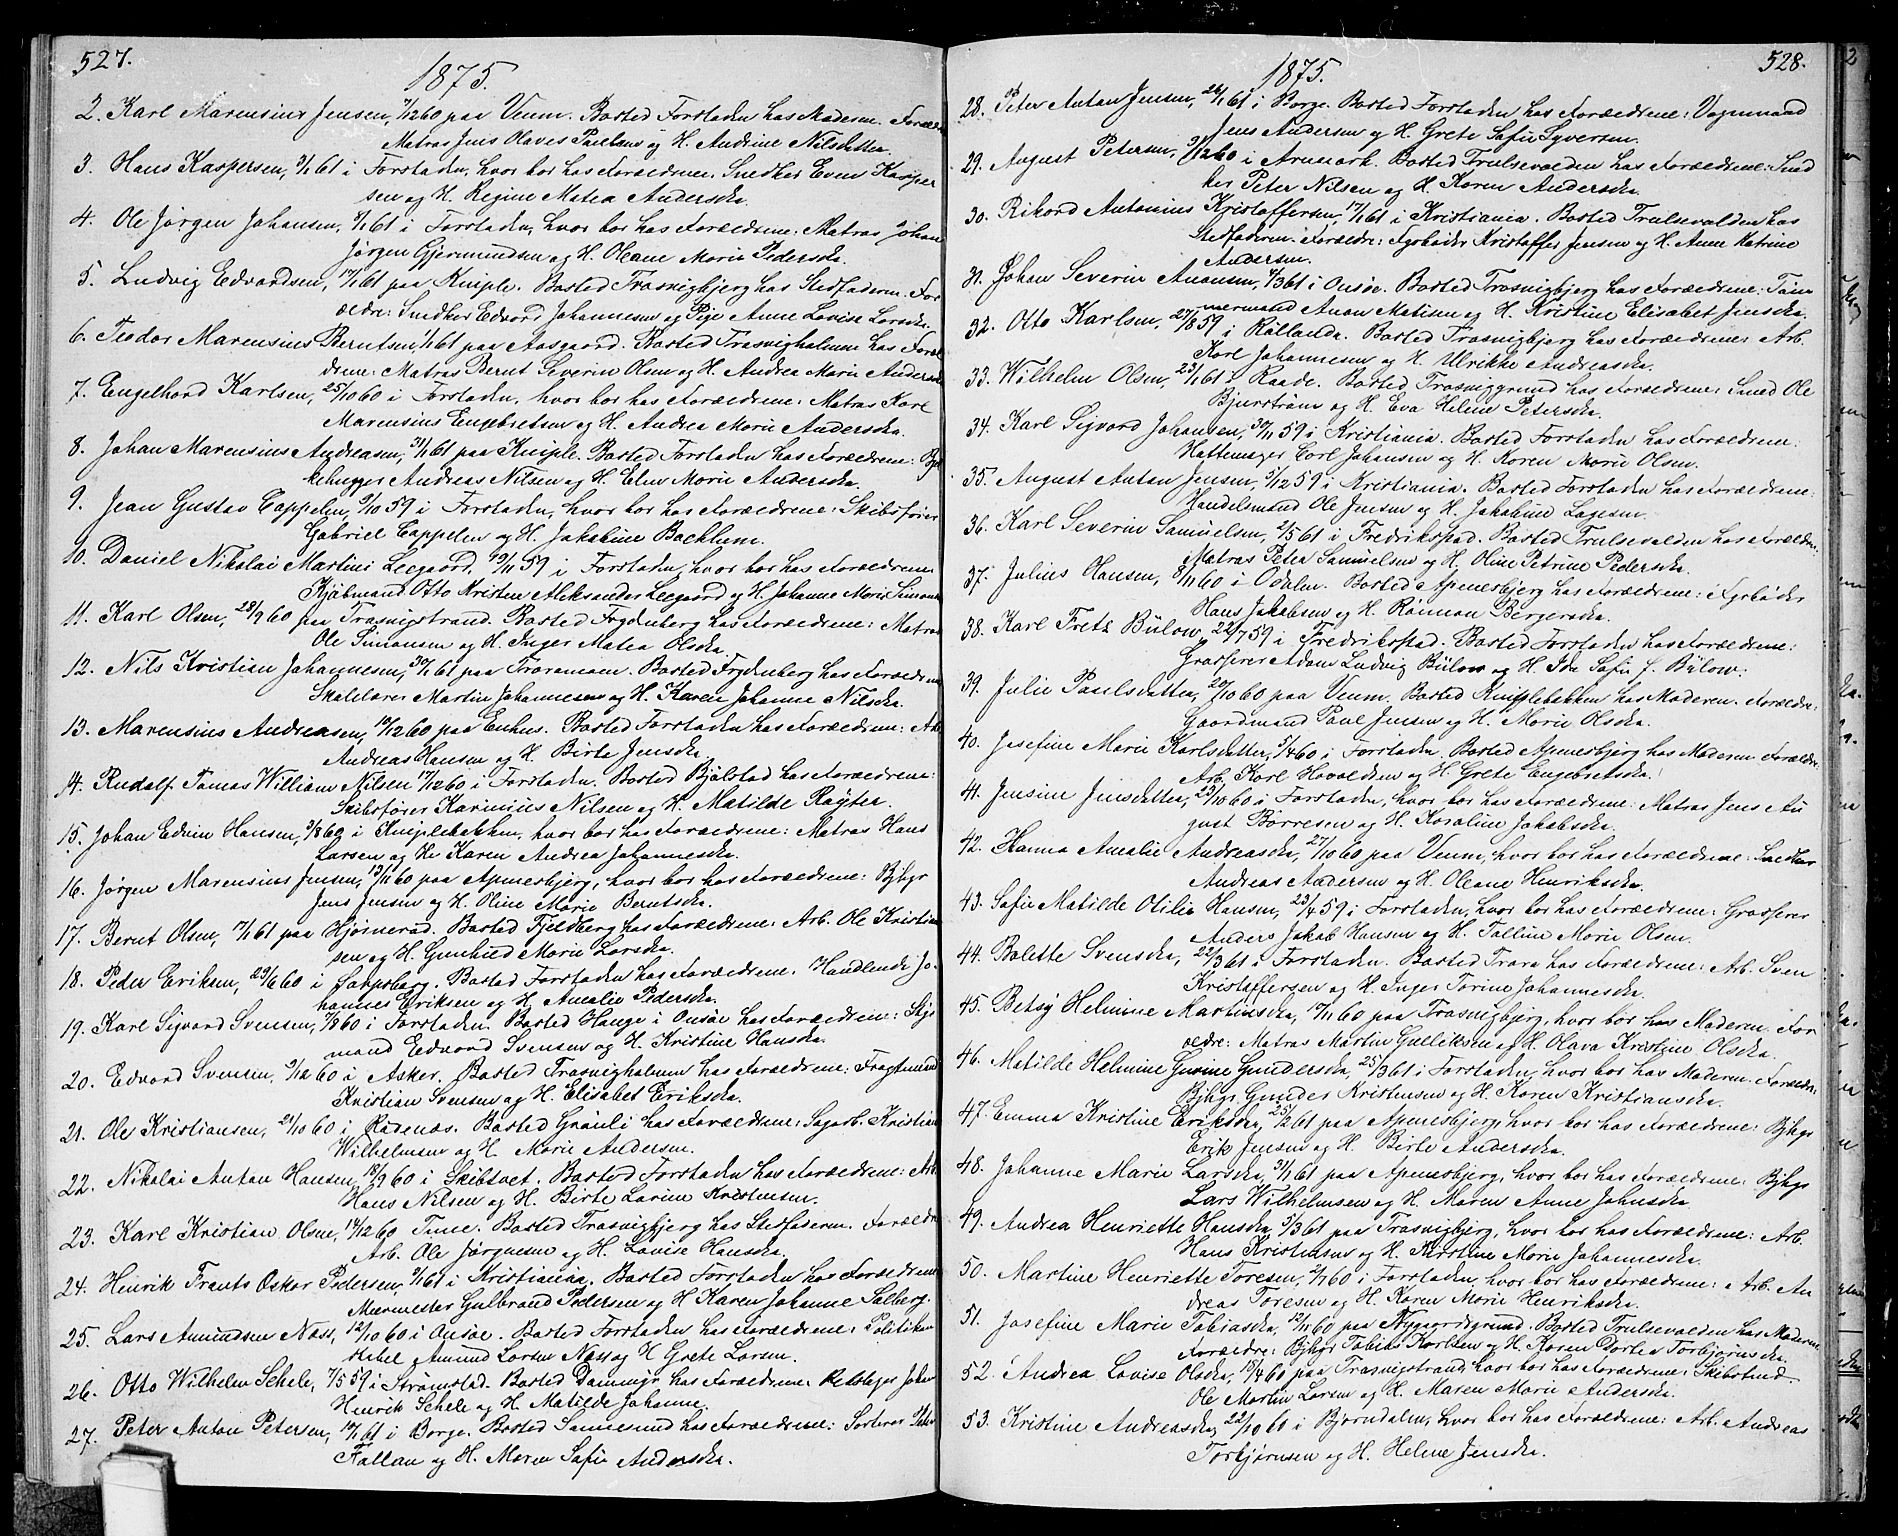 527.
1875.
2. Karl Marensius Jensen, 7/12 60 paa Venm. Bosted Forstaden hos Moderne. Foræld
Matros Jens Olaves Paulsen og H. Andrine Nilsdatter.
3. Hans Kaspersen, 3/1 61 i Forstaden, hvor bor hos Forældrene: Snedker Even Kasper
sen og H. Regine Matea Andersdr.
4. Ole Jørgen Johansen, 9/1 61 i Forstaden, hvor bor hos Forældrene: Matros Johan
Jørgen Gjermundsen og H. Oleane Marie Pedersdr.
5. Ludvig Edvardsen, 17/1 61 paa Kniple. Bosted Trosvigbjerg hos Stedfaderen. For
ældre: Snedker Edvard Johannesen og Pige Anne Lovise Larsdr.
6. Teodor Marensius Berntsen, 1/1 61 paa Aasgaard. Bosted Trosvigholmen hos Foræl
drene: Matros Bernt Severin Olsen og H. Andrea Marie Andersdr
7. Engelhard Karlsen, 25/10 60 i Forstaden, hvor bor hos Forældrene: Matros Karl
Marensius Engebretsen og H. Andrea Marie Andersdr.
8. Johan Marensius Andreasen, 31/1 61 paa Kniple. Bosted Forstaden hos Forældrene: Bjæl
kehugger Andreas Nilsen og H. Elen Marie Andersdr.
9. Jean Gustav Cappelen, 9/10 59 i Forstaden, hvor bor hos Forældrene: Skibsfører
Gabriel Cappelen og H. Jakobine Bockhem.
10. Daniel Nikolai Martini Leegaard, 19/11 59 i Forstaden, hvor bor hos Forældrene
Kjøbmand Otto Kristen Aleksander Leegaard og H. Johanne Marie Simonsen
11. Karl Olsen, 28/9 60 paa Trosvigstrand. Bosted Frydenberg hos Forældrene: Matros
Ole Simonsen og H. Inger Matea Olsdr.
12. Nils Kristian Johannesen, 30/1 61 paa Traramoen. Bosted Frydenberg hos Forældrene
Skolelærer Martin Johannesen og H. Karen Johanne Nilsdr.
13. Marensius Andreasen, 10/12 60 paa Enhus. Bosted Forstaden hos Forældrene: Arb
Andreas Hansen og H. Birte Jensdr.
14. Rudolf Tomas William Nilsen 17/12 60 i Forstaden. Bosted Bjølstad hos Forældrene:
Skibsfører Karinius Nilsen og H. Matilde Røyter.
15. Johan Edvin Hansen, 3/8 60 i Kniplebakken, hvor bor hos Forældrene: Matros Hans
Larsen og H. Karen Andrea Johannesdr.
16. Jørgen Marensius Jensen, 13/11 60 paa Apenesbjerg, hvor bor hos Forældrene: Bjhgr
Jens Jensen og H. Oline Marie Berntsdr.
17. Bernt Olsen, 17/1 61 paa Hjørnerød. Bosted Fjeldberg hos Forældrene: Arb. Ole Kristian
sen og H. Gunhild Marie Larsdr.
18. Peder Eriksen, 29/6 60 i Sarpsborg. Bosted Forstaden hos Forældrene. Handlende Jo-
hannes Eriksen og H. Amalie Pedersdr.
19. Karl Sigvard Svensen, 7/8 60 i Forstaden. Bosted Hauge i Onsø hos Forældrene: Stys
mand Edvard Svensen og H. Kristine Hansdr.
20. Edvard Svensen, 9/12 60 i Asker. Bosted Trosvigholmen hos Forældrene: Fragtmand
Kristian Svensen og H. Elisabet Eriksdr.
21. Ole Kristiansen, 21/10 60 i Rødenæs. Bosted Grønli hos Forældrene: Sagarb. Kristian
Wilhelmsen og H. Marie Andersen.
22. Nikolai Anton Hansen, 18/9 60 i Skibtvet. Bosted Forstaden hos Forældrene: Arb
Hans Nilsen og H. Birte Larine Kristensen.
23. Karl Kristian Olsen, 17/12 60 Tune. Bosted Trosvigbjerg hos Stedfaderen. Forældre
Arb. Ole Jørgensen og H. Lovise Hansdr.
24. Henrik Frants Oskar Pedersen, 9/1 61 i Kristiania. Bosted Forstaden hos Forældrene
Murmester Gulbrand Pedersen og H. Karen Johanne Solberg.
25. Lars Amundsen Næss, 12/10 60 i Onsøe. Bosted Forstaden hos Forældrene: Politikon
stabel Amund Larsen Næss og H. Grete Larsen.
26. Otto Wilhelm Schele, 7/5 59 i Strømstad. Bosted Daming hos Forældrene: Rebslager Johan
Henrik Schele og H. Matilde Johanne.
27. Peter Anton Petersen, 17/1 61 i Borge. Bosted Sannesund hos Forældrene: Sorterer Peter
Fallan og H. Maren Sofie Andersdr.
528.
1875.
28. Peter Anton Jensen, 24/1 61 i Borge. Bosted Forstaden hos Forældrene: Vognmand
Jens Andersen og H. Grete Sofie Syversen.
29. August Petersen, 9/12 60 i Aremark. Bosted Trulsevolden hos Forældrene: Sned
ker Peter Nilsen og H. Karen Andersdr.
30. Rikard Antonius Kristoffersen, 17/1 61 i Kristiania. Bosted Trulsevolden hos
Stedfaderen. Forældre: Fyrbøder Kristoffer Jensen og H. Anne Katrine
Andersen.
31. Johan Severin Anonsen, 4/3 61 i Onsøe. Bosted Trosvigbjerg hos Forældrene: Tøm
mermand Anon Matisen og H. Kristine Elisabet Jensdr.
32. Otto Karlsen, 27/8 59 i Rollanda. Bosted Trosvigbjerg hos Forældrene: Arb.
Karl Johannesen og H. Ulrikke Andreasdr.
33. Wilhelm Olsen, 23/1 61 i Raade. Bosted Trosviggrund hos Forældrene: Smed Ole
Bjurstrøm og H. Eva Helene Petersdr.
34. Karl Sigvard Johansen, 30/11 59 i Kristiania. Bosted Forstaden hos Forældrene:
Hattemager Carl Johansen og H. Karen Marie Olsen.
35. August Anton Jensen, 5/12 59 i Kristiania. Bosted Forstaden hos Forældrene:
Handelsmand Ole Jensen og H. Jakobine Lagesen.
36. Karl Severin Samuelsen, 2/5 61 i Fredrikstad. Bosted Trulsevolden hos Forældre:
Matros Peter Samuelsen og H. Oline Petrine Pedersdr.
37. Julius Hansen, 8/11 60 i Odalen. Bosted Apenesbjerg hos Forældrene: Fyrbøder
Hans Jakobsen og H. Rønnau Bergersdr.
38. Karl Fretz Bülow, 22/7 59 i Fredrikstad. Bosted Forstaden hos Forældrene:
Grosserer Adam Ludvig Bülow og H. Ida Sofie f. Bülow.
39. Julie Paulsdatter, 20/10 60 paa Venm. Bosted Kniplebakken hos Moderen. Forældre:
Gaardmand Paul Jensen og H. Marie Olsdr.
40. Josefine Marie Karlsdatter, 5/4 60 i Forstaden. Bosted Apenesbjerg hos Moderen. Forældre
Arb. Karl Havoldsen og H. Grete Engebretsdr.
41. Jensine Jensdatter, 23/10 60 i Forstaden, hvor bor hos Forældrene: Matros Jens Au
gust Børresen og H. Karoline Jakobsdr.
42. Hanna Amalie Andreasdr, 27/10 60 paa Venm, hvor bor hos Forældrene: Snedker
Andreas Andersen og H. Oleane Henriksdr.
43. Sofie Matilde Otilie Hansen, 23/4 59 i Forstaden, hvor bor hos Forældrene: Grosserer
Anders Jakob Hansen og H. Talline Marie Olsen.
44. Bolette Svensdr, 22/3 61 i Forstaden. Bosted Trara hos Forældrene: Arb. Sven
Kristoffersen og H. Inger Torine Johannesdr.
45. Betsy Helmine Martinsdr, 17/11 60 paa Trosvigbjerg, hvor bor hos Moderen. For
ældre: Matros Martin Gulliksen og H. Olava Kristine Olsdr.
46. Matilde Helmine Gurine Gundersdr, 25/3 61 i Forstaden, hvor bor hos Moderen. Forældre:
Bjhgr Gunder Kristensen og H. Karen Kristiansdr.
47. Emma Kristine Eriksdr, 25/2 61 paa Apenesbjerg, hvor bor hos Forældrene: Bjhgr
Erik Jensen og H. Birte Andersdr.
48. Johanne Marie Larsdr, 31/1 61 paa Apenesbjerg, hvor bor hos Forældrene: Bjhgr
Lars Wilhelmsen og H. Maren Anne Johnsdr.
49. Andrea Henriette Hansdr, 5/3 61 paa Trosvigbjerg, hvor bor hos Forældrene: Arb.
Hans Kristensen og H. Kirstine Marie Johannesdr.
50. Martine Henriette Toresen, 2/7 60 i Forstaden, hvor bor hos Forældrene: Arb. An
dreas Toresen og H. Karen Marie Henriksdr.
51. Josefine Marie Tobiasdr, 12/11 60 paa Nygaardsgrund. Bosted Trulsevolden hos Moderen
Forældre: Bjhgr Tobias Karlsen og H. Karen Dortea Torbjørnsdr.
52. Andrea Lovise Olsdr, 18/4 60 paa Trosvigstrand, hvor bor hos Forældrene: Skibstmd.
Ole Martin Larsen og H. Maren Marie Andersdr.
53. Kristine Andreasdr, 22/10 60 i Bjørndalen, hvor bor hos Forældrene: Arb. Andreas
Torbjørnsen og H. Helene Jensdr.